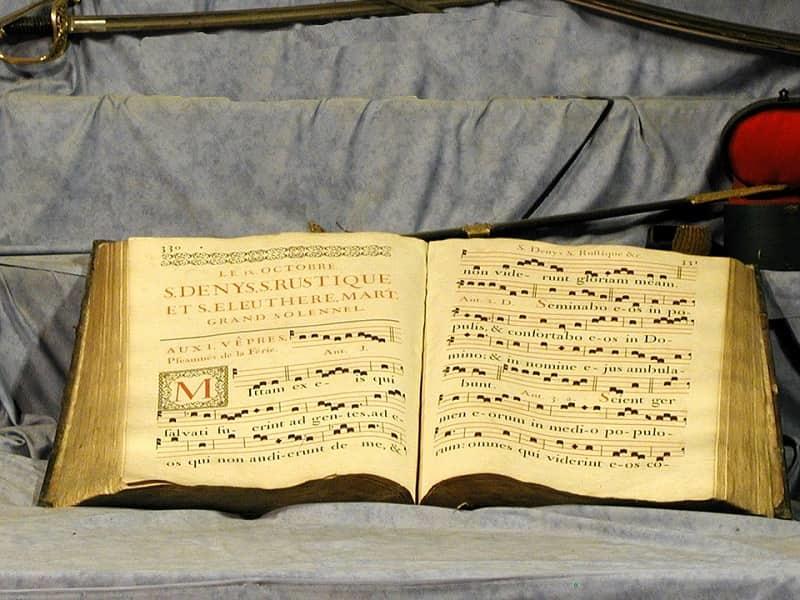 330
LE IX. OCTOBRE
S. DENYS, S. RUSTIQUE
ET S. ELEUTHERE, MART.
GRAND SOLENNEL.
AUX I. VÊPRES.
Pseaumes de la Férie.
Ant. 1.
MIttam ex e- is qui
salvati fu- erint ad gen- tes, ad e-
os qui non audi-erunt de me, &
S. Denys S. Rustique &c.
331
non vide- runt gloriam meam.
Ant. 2. D. Seminabo e-os in po-
pulis, & confortabo e-os in Do-
mino; & in nomine e- jus ambula-
bunt. Ant. 3. a. Scient ger
men e-orum in medi-o po- pulo-
rum: omnes qui viderint e-os co-